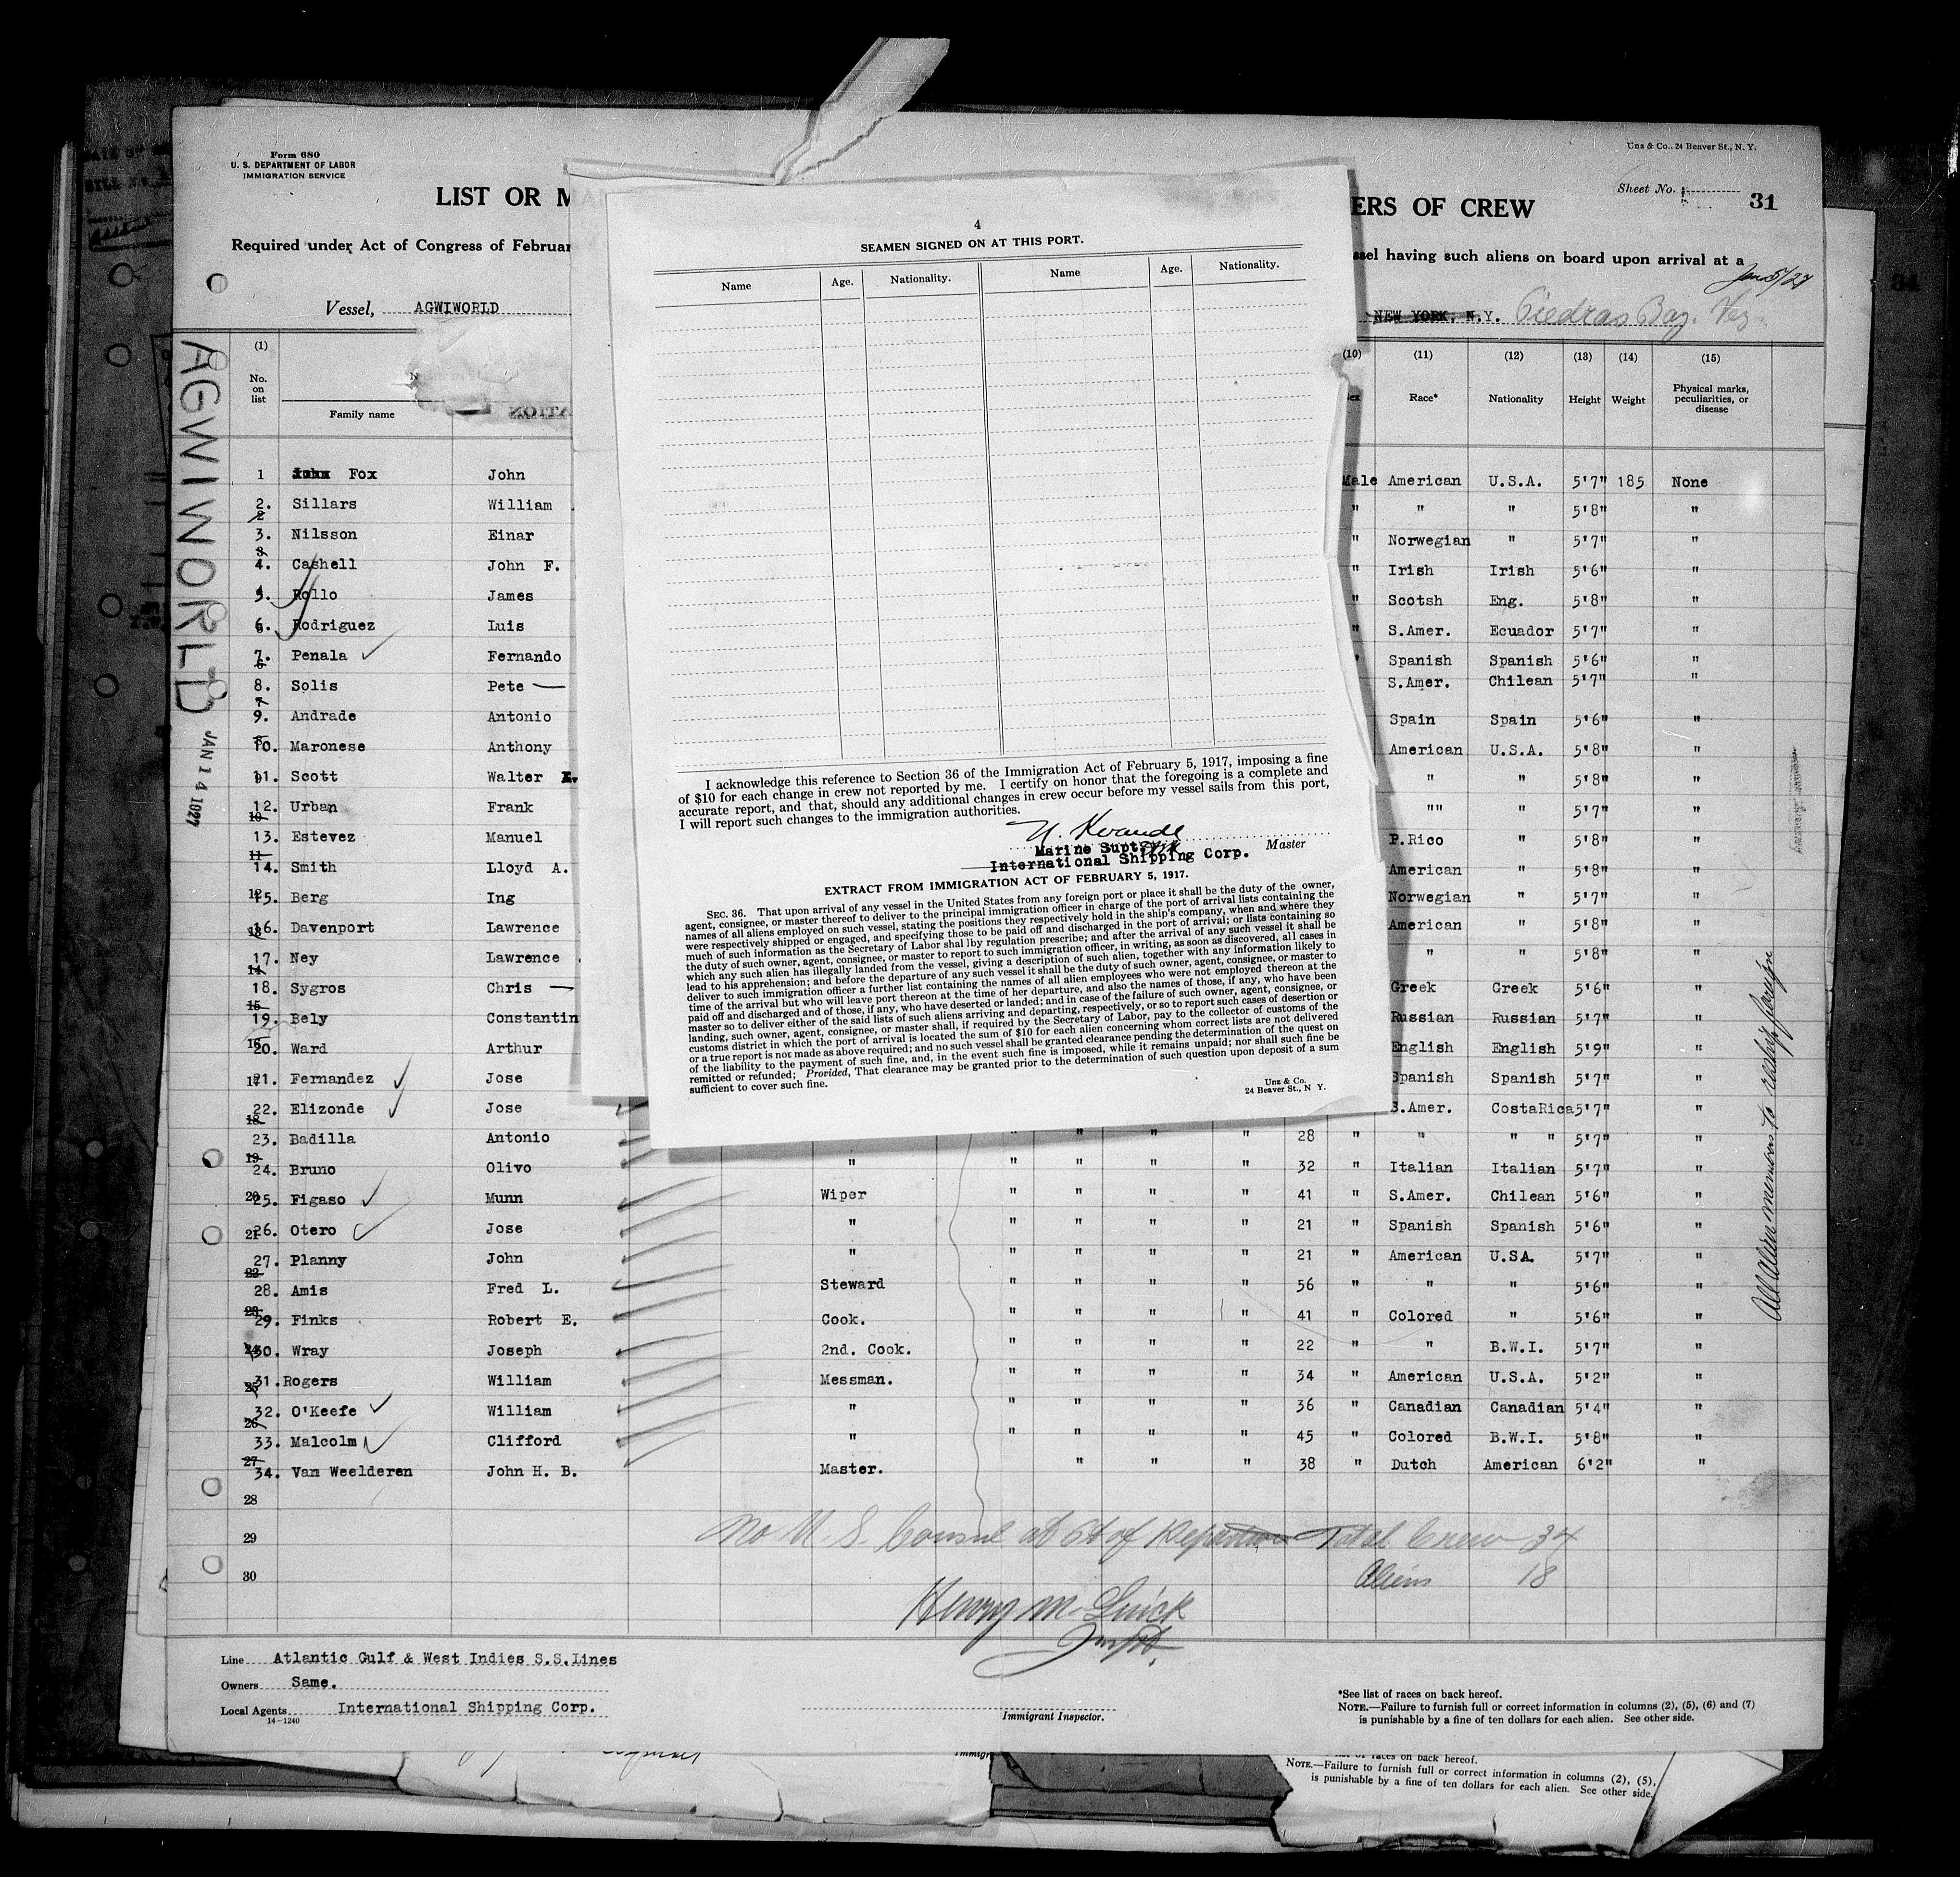 Form 680
U. S. DEPARTMENT OF LABOR
IMMIGRATION SERVICE
Unz & Co., 24 Beaver St., N. Y.
Sheet No. 31
LIST OR M ERS OF CREW
Required under Act of Congress of Februar ssel having such aliens on board upon arrival at a
Jan 5/27
Vessel, AGWIWORLD NEW YORK, N.Y. Piedras Bay. Vez.
AGWIWORLD
JAN 14 1927
(1) (10) (11) (12) (13) (14) (15)
No. on list Family name Race* Nationality Height Weight Physical marks, peculiarities, or disease
1 John Fox John Male American U.S.A. 5'7" 185 None
2. Sillars William " " " 5'8" "
3. Nilsson Einar " Norwegian " 5'7" "
4. Cashell John F. " Irish Irish 5'6" "
5. Rollo James " Scotsh Eng. 5'8" "
6. Rodriguez Luis " S.Amer. Ecuador 5'7" "
7. Penala Fernando " Spanish Spanish 5'6" "
8. Solis Pete S.Amer. Chilean 5'7" "
9. Andrade Antonio Spain Spain 5'6" "
10. Maronese Anthony American U.S.A. 5'8" "
11. Scott Walter " " 5'8" "
12. Urban Frank "" " 5'7" "
13. Estevez Manuel P.Rico " 5'8" "
14. Smith Lloyd A. American " 5'8" "
15. Berg Ing Norwegian " 5'7" "
16. Davenport Lawrence American " 5'8" "
17. Ney Lawrence " " 5'8" "
18. Sygros Chris Greek Greek 5'6" "
19. Bely Constantin Russian Russian 5'7" "
20. Ward Arthur English English 5'9" "
21. Fernandez Jose Spanish Spanish 5'7" "
22. Elizonde Jose S.Amer. CostaRica 5'7" "
23. Badilla Antonio " " " " 28 " " " " 5'7" "
24. Bruno Olivo " " " " " 32 " Italian Italian 5'7" "
25. Figaso Munn Wiper " " " " 41 " S.Amer. Chilean 5'6" "
26. Otero Jose " " " " " 21 " Spanish Spanish 5'6" "
27. Planny John " " " " " 21 " American U.SA. 5'7" "
28. Amis Fred L. Steward " " " " 56 " " " 5'6" "
29. Finks Robert E. Cook. " " " " 41 " Colored " 5'6" "
30. Wray Joseph 2nd. Cook. " " " " 22 " " B.W.I. 5'7" "
31. Rogers William Messman. " " " " 34 " American U.S.A. 5'2" "
32. O'Keefe William " " " " " 36 " Canadian Canadian 5'4" "
33. Malcolm Clifford " " " " " 45 " Colored B.W.I. 5'8" "
34. Van Weelderen John H. B. Master. " " " 38 " Dutch American 6'2" "
28
29
30
No U. S. Consul at Pt of Departure Total Crew 34
Aliens 18
Henry M. Quick
Inspt.
All Alien members to reship foreign
Line Atlantic Gulf & West Indies S.S.Lines
Owners Same.
Local Agents International Shipping Corp.
14-1240
Immigrant Inspector.
*See list of races on back hereof.
NOTE.—Failure to furnish full or correct information in columns (2), (5), (6) and (7)
is punishable by a fine of ten dollars for each alien. See other side.
4
SEAMEN SIGNED ON AT THIS PORT.
Name Age. Nationality. Name Age. Nationality.
I acknowledge this reference to Section 36 of the Immigration Act of February 5, 1917, imposing a fine
of $10 for each change in crew not reported by me. I certify on honor that the foregoing is a complete and
accurate report, and that, should any additional changes in crew occur before my vessel sails from this port,
I will report such changes to the immigration authorities.
Marine Supt. Master
International Shipping Corp.
EXTRACT FROM IMMIGRATION ACT OF FEBRUARY 5, 1917.
SEC. 36. That upon arrival of any vessel in the United States from any foreign port or place it shall be the duty of the owner,
agent, consignee, or master thereof to deliver to the principal immigration officer in charge of the port of arrival lists containing the
names of all aliens employed on such vessel, stating the positions they respectively hold in the ship's company, when and where they
were respectively shipped or engaged, and specifying those to be paid off and discharged in the port of arrival; or lists containing so
much of such information as the Secretary of Labor shal lby regulation prescribe; and after the arrival of any such vessel it shall be
the duty of such owner, agent, consignee, or master to report to such immigration officer, in writing, as soon as discovered, all cases in
which any such alien has illegally landed from the vessel, giving a description of such alien, together with any information likely to
lead to his apprehension; and before the departure of any such vessel it shall be the duty of such owner, agent, consignee, or master to
deliver to such immigration officer a further list containing the names of all alien employees who were not employed thereon at the
time of the arrival but who will leave port thereon at the time of her departure, and also the names of those, if any, who have been
paid off and discharged and of those, if any, who have deserted or landed; and in case of the failure of such owner, agent, consignee, or
master so to deliver either of the said lists of such aliens arriving and departing, respectively, or so to report such cases of desertion or
landing, such owner, agent, consignee, or master shall, if required by the Secretary of Labor, pay to the collector of customs of the
customs district in which the port of arrival is located the sum of $10 for each alien concerning whom correct lists are not delivered
or a true report is not made as above required; and no such vessel shall be granted clearance pending the determination of the quest on
of the liability to the payment of such fine, and, in the event such fine is imposed, while it remains unpaid; nor shall such fine be
remitted or refunded; Provided, That clearance may be granted prior to the determination of such question upon deposit of a sum
sufficient to cover such fine.
Unz & Co.
24 Beaver St., N Y.
races on back hereof.
NOTE.—Failure to furnish full or correct information in columns (2), (5),
is punishable by a fine of ten dollars for each alien. See other side.